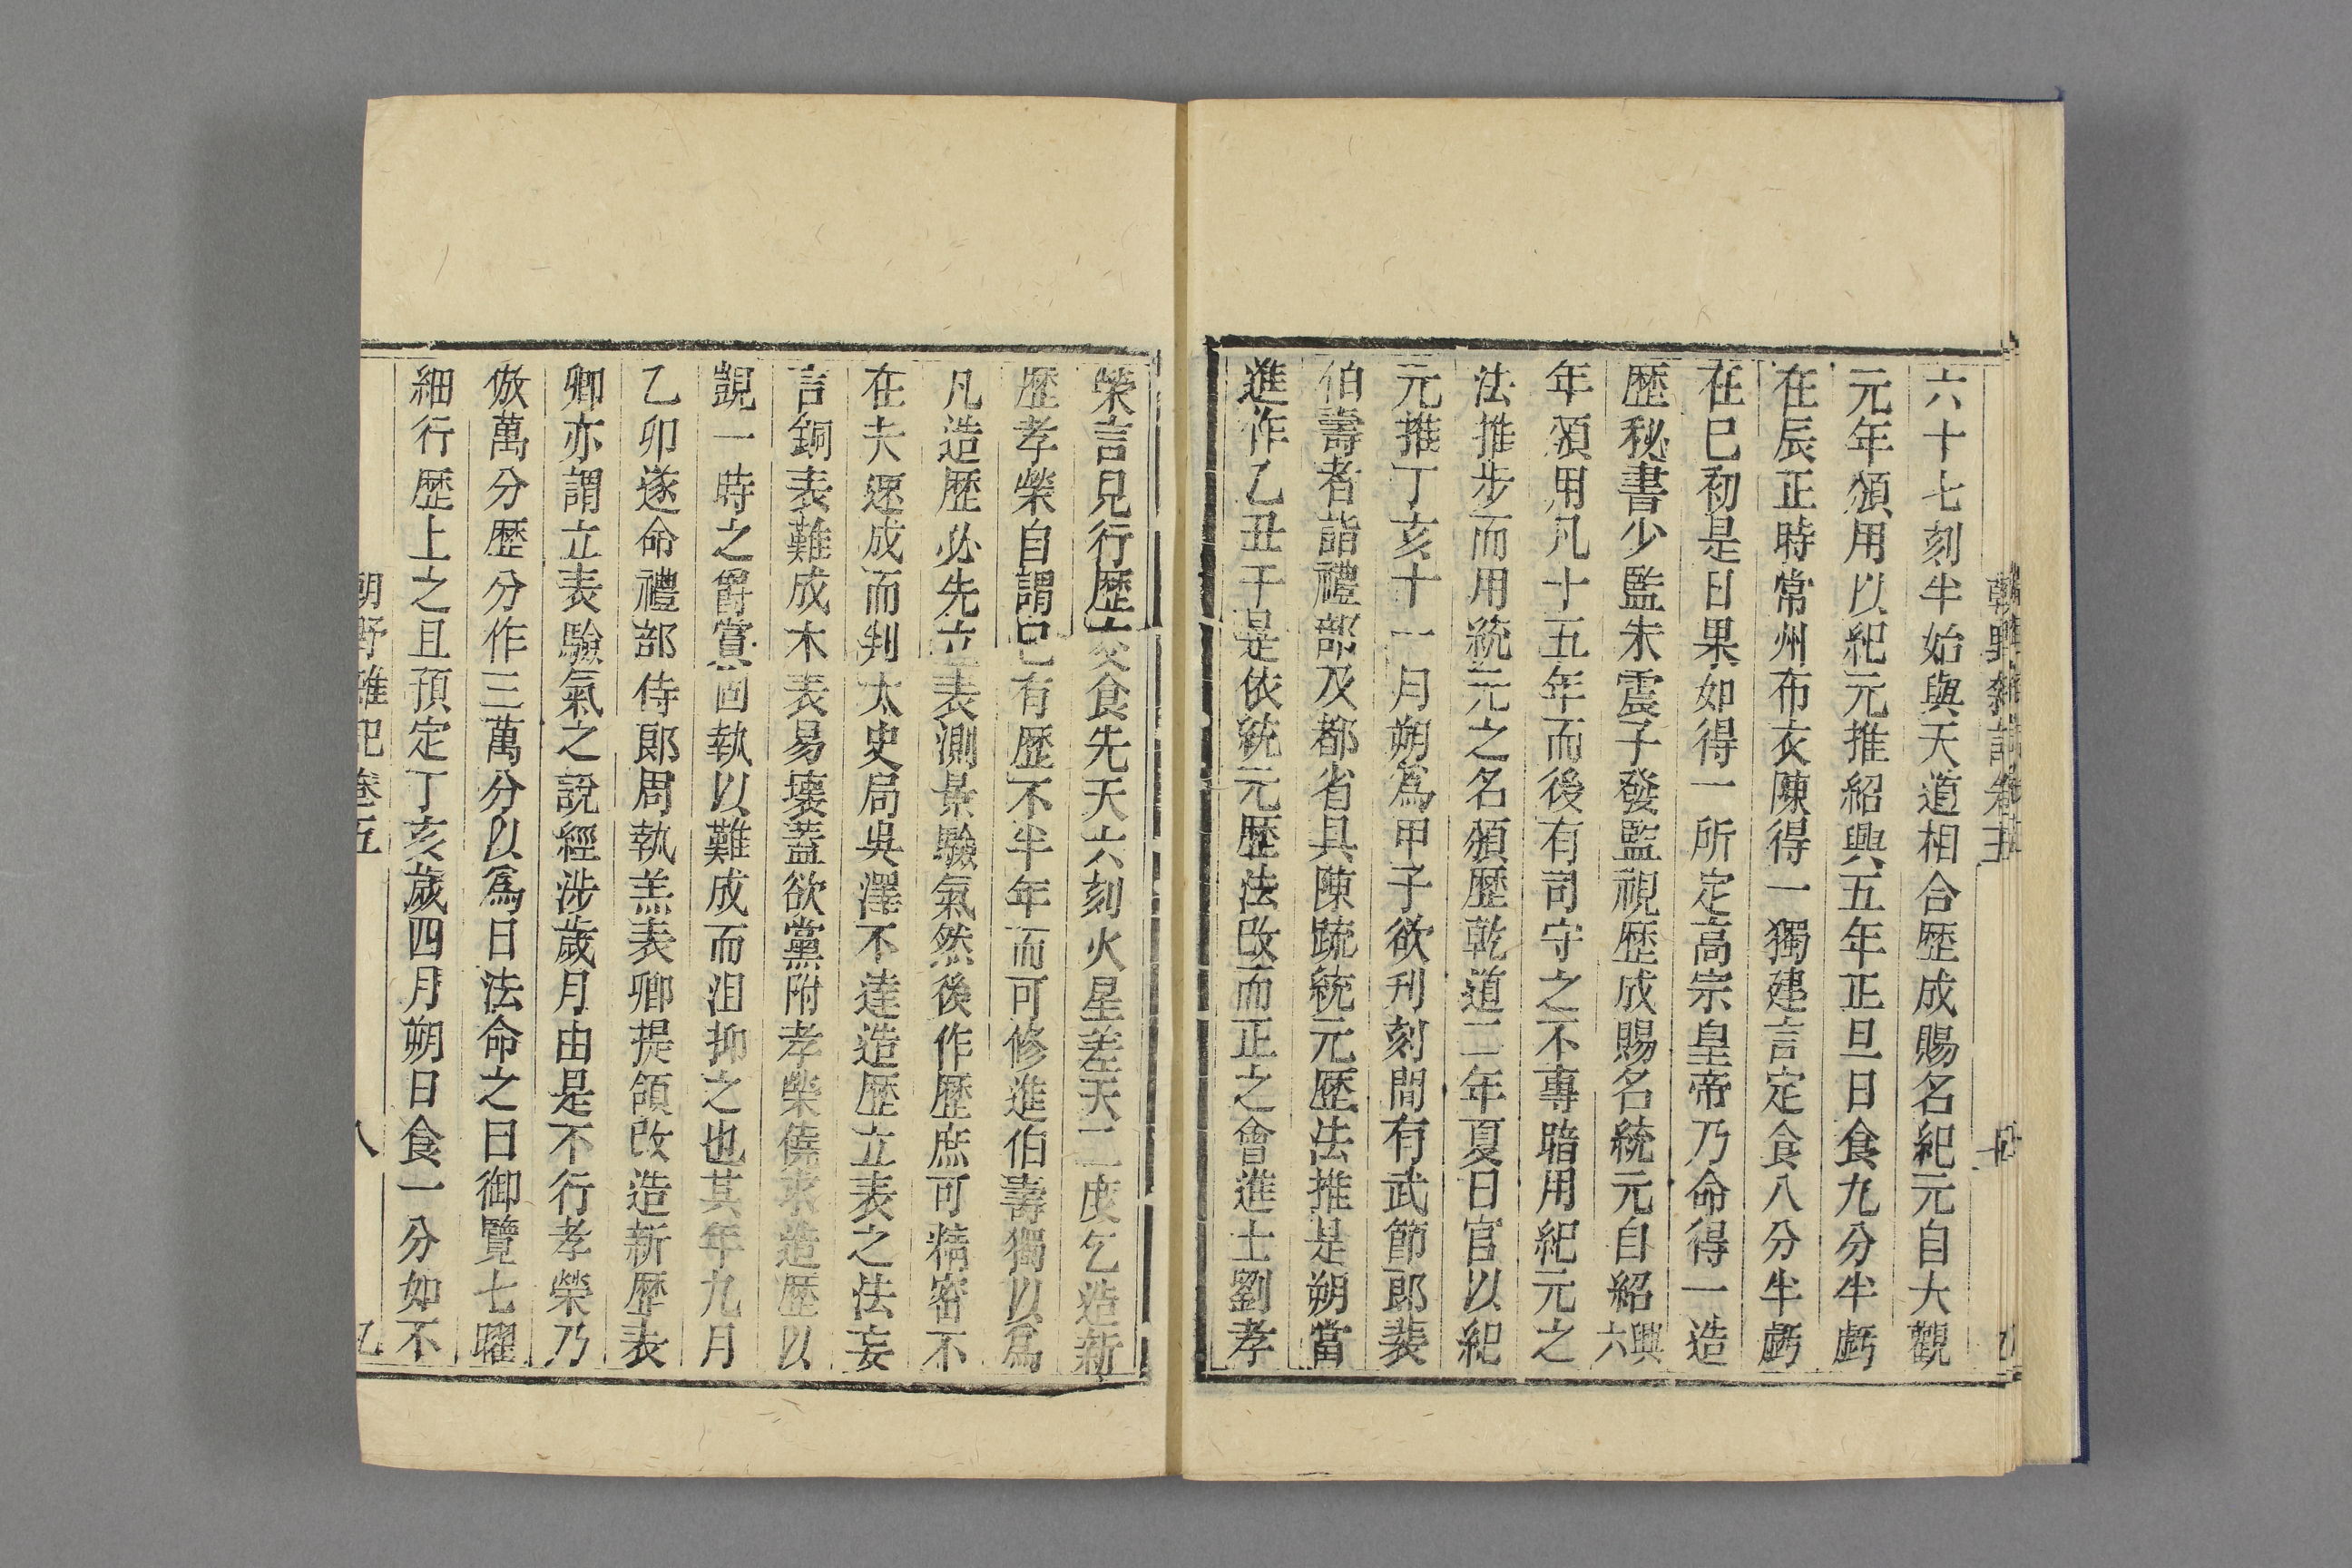 六十七刻半始與天道相合歷成賜名紀元自大觀
元年頒用以紀元推紹興五年正旦日食九分半虧
在辰正時常州布衣陳得一獨建言定食八分半虧
在巳初是日果如得一所定高宗皇帝乃命得一造
歷秘書少監朱震子發監視歷成賜名統元自紹興六
年頒用凡十五年而後有司守之不專暗用紀元之
法推步而用統元之名頒歷乾道二年夏日官以紀
元推丁亥十一月朔爲甲子欲刋刻間有武節郎裴
伯壽者詣禮部及都省具陳䟽統元歷法推是朔當
進作乙丑于是依統元歷法改而正之會進士劉孝
榮言見行歷交食先天六刻火星差天二度乞造新
歷孝榮自謂巳有歷不半年而可修進伯壽獨以爲
凡造歷必先立表測景驗氣然後作歷庶可精密不
在夫速成而判太史局吳澤不達造歷立表之法妄
言銅表難成木表易壞蓋欲黨附孝榮僥求造歷以
覬一時之爵賞固執以難成而沮抑之也其年九月
乙卯遂命禮部侍郎周執羔表卿提領改造新歷表
卿亦謂立表驗氣之說經涉歲月由是不行孝榮乃
倣萬分歷分作三萬分以爲日法命之曰御覽七曜
細行歷上之且預定丁亥歲四月朔日食一分如不
朝野雜記卷五
八